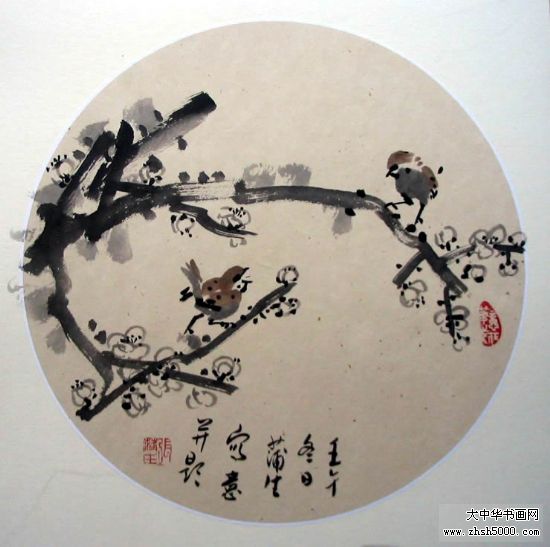 壬午
冬日
蒲生
寫意
并題
大中华书画网
www.zhsh5000.com